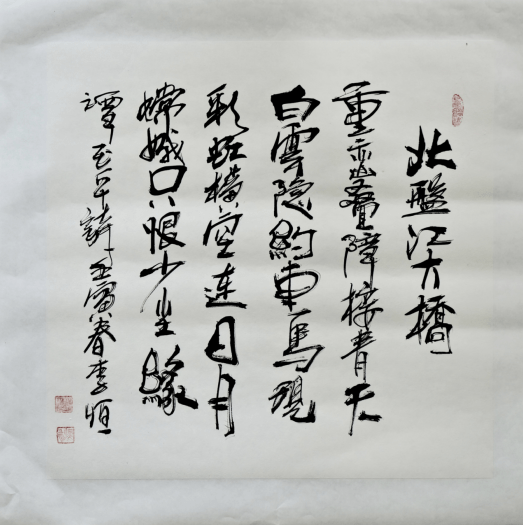 北盤江大橋
重峦叠障接青天
白雲隐約車馬現
彩虹横空連日月
嫦娥只恨少坐緣
譚平詩壬寅春李恒